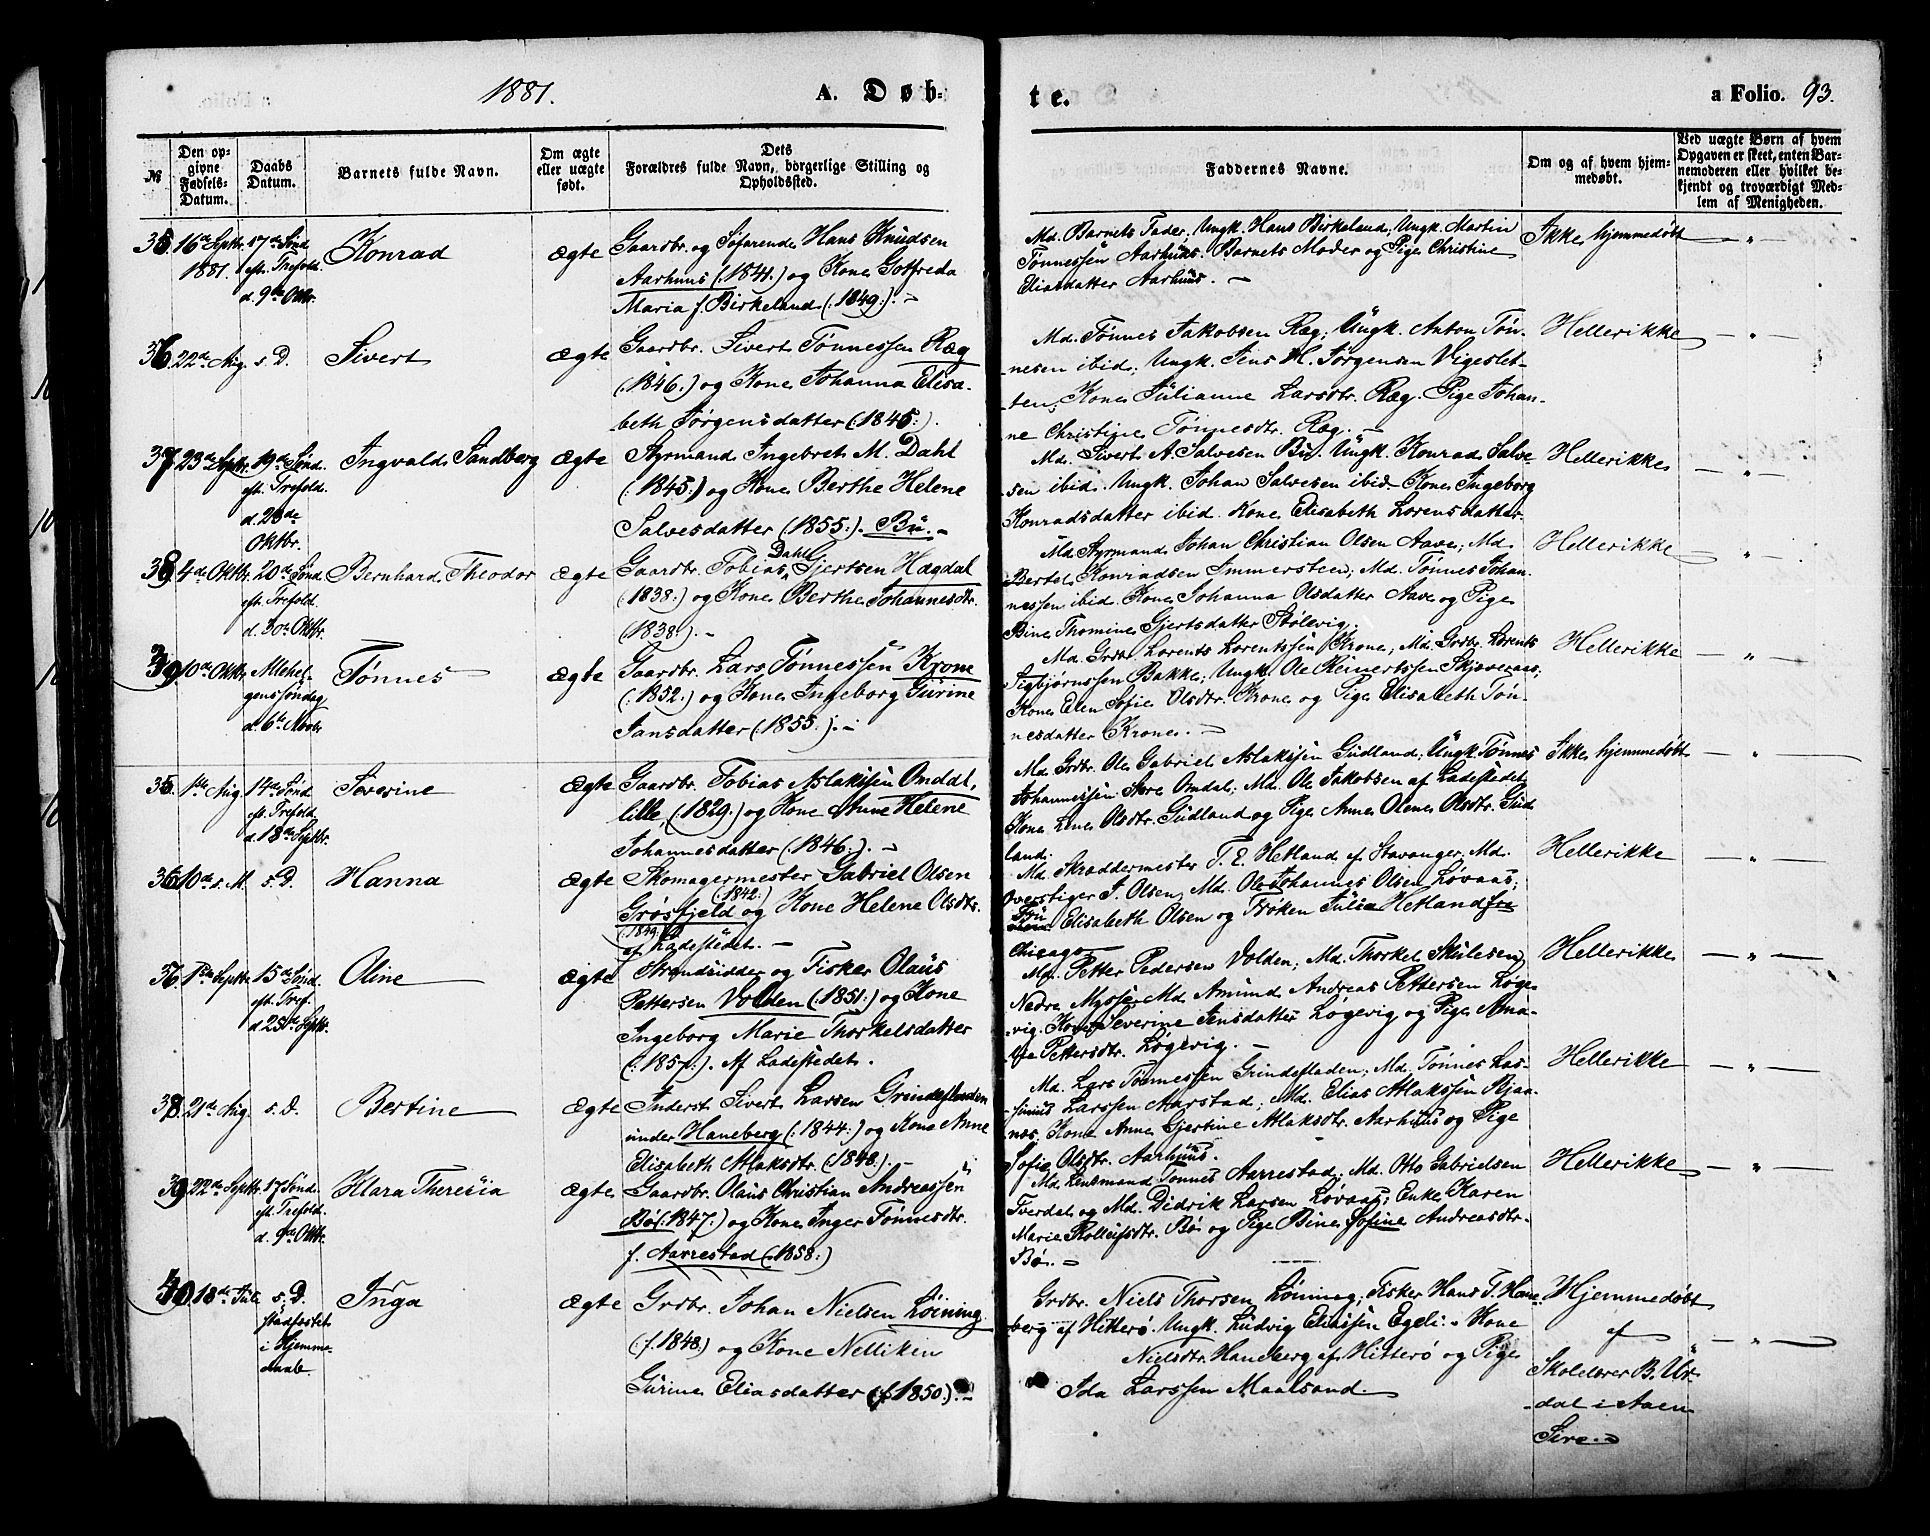 1881. A. Døb-
te. a Folio. 93.
№ Den op-
givne
Fødsels-
Datum.
Daabs
Datum.
Barnets fulde Navn.
Om ægte
eller uægte
født.
Dets
Forældres fulde Navn, borgerlige Stilling og
Opholdssted.
Faddernes Navne.
Om og af hvem hjem-
medøbt.
Ved uægte Børn af hvem
Opgaven er skeet, enten Bar-
nemoderen eller hvilket be-
kjendt og troværdigt Med-
lem af Menigheden.
35 16de Septbr.
1881.
17de Sønd.
eft. Trefold.
d. 9de Oktbr.
Konrad
Ægte
Gaardbr. og Søfarende Hans Knudsen
Aarhuus (:1841:) og Kone Gotfreda
Maria f. Birkeland (:1849:). –
Md. Barnets Fader, Ungk. Hans Birkeland, Ungk. Martin
Tønnessen Aarhuus. Barnets Moder og Pige Christine
Eliasdatter Aarhuus. –
Ikke hjemmedøbt
— " —
36 22de Aug. s. D.
Sivert
Ægte
Gaardbr. Sivert Tønnessen Ræg
(:1846:) og Kone Johanna Elisa-
beth Jørgensdatter (:1845:).
Md. Tønnes Jakobsen Ræg; Ungk. Anton Tøn-
nesen ibid; Ungk. Jens H. Jørgensen Vigeslet-
ten; Kone Juliane Larsdtr. Ræg. Pige Johan-
ne Christine Tønnesdtr. Ræg. –
Hellerikke
— " —
37 23de Septbr.
19de Sønd.
eft. Trefold.
d. 23de
Oktbr.
Ingvald Sandberg
Ægte
Styrmand Ingebret M. Dahl
(:1845:) og Kone Berthe Helene
Salvesdatter (:1855:). Bu. –
Md. Sivert A. Salvesen Bu. Ungk. Konrad Salve-
sen ibid. Ungk. Johan Salvesen ibid. Kone Ingeborg
Konradsdatter ibid. Kone Elisabeth Lorensdatter
Hellerikke
— " —
38 4de Oktbr.
20de Sønd.
eft. Trefold.
d. 30te Oktbr.
Bernhard Theodor
Ægte
Gaardbr. Tobias Dahl Gjertsen Hægdal
(:1838:) og Kone Berthe Johannesdtr.
(:1838:). –
Md. Styrmand Johan Christian Olsen Aave; Md.
Bertel Konradsen Immersteen; Md. Tønnes Johan-
nessen ibid. Kone Johanna Olsdatter Aave og Pige
Bine Thomine Gjertsdatter Stølevig.
Hellerikke
— " —
39 10de Oktbr.
Allehel-
gensøndag
d. 6te Novbr.
Tønnes
Ægte
Gaardbr. Lars Tønnessen Krone
(:1852:) og Kone Ingeborg Gurine
Jansdatter (:1855:). –
Md. Grdbr. Lorents Lorentssen Krone, Md. Grdbr. Lorents
Sigbjørnssen Bakke; Ungk. Ole Reinertssen Skjeveraas;
Kone Elen Sofie Olsdtr. Krone og Pige Elisabeth Tøn-
nesdatter Krone. –
Hellerikke
— " —
35. 1ste Aug.
14de Sønd.
eft. Trefold.
d. 18de Septbr.
Severine
Ægte
Gaardbr. Tobias Aslaksen Omdal,
lille, (:1829:) og Kone Anne Helene
Johannesdatter (:1846:). –
Md. Grdbr. Ole Gabriel Aslaksen Gudland; Ungk. Tønnes
Johannessen Store Omdal; Md. Ole Jakobsen af Ladestedet
Kone Lene Olsdtr. Gudland og Pige Anne Olene Olsdtr. Gud-
land.
Ikke hjemmedøbt
— " —
36 10de s. M. s. D.
Hanna
Ægte
Skomagermester Gabriel Olsen
Grøsfjeld (:1842:) og Kone Helene Olsdtr.
(:1849:)
af Ladestedet. –
Md. Skræddermester T. E. Hetland af Stavanger, Md.
Overstiger J. Olsen, Md. Ole Johannes Olsen Løvaas;
Fru Elisabeth Olsen og Frøken Julia Hetland fra
Chicago
Hellerikke
— " —
37 1ste Septbr.
15de Sønd.
eft. Tref.
d. 25de Septbr.
Oline
Ægte
Strandsidder og Fisker Olaus
Pettersen Volden (:1851:) og Kone
Ingeborg Marie Thorkelsdatter
(:1857:). Af Ladestedet.
Md. Petter Pedersen Volden; Md. Thorkel Skulesen
Nedre Mysse; Md. Amund Andreas Pettersen Løge-
vig. Kone Severine Jensdatter Løgevig og Pige Ama-
lia Pettersdtr. Løgevig. –
Hellerikke
— " —
38 21de Aug. s. D.
Bertine
Ægte
Inderst Sivert Larsen Grindesladen
under Haneberg (:1844:) og Kone Anne
Elisabeth Atlaksdtr. (:1848:). –
Md. Lars Tønnessen Grindesladen; Md. Tønnes Las-
sinius Larssen Aarstad; Md. Elias Atlakssen Rjaa-
nes, Kone Anne Gjertine Atlaksdtr. Aarhuus og Pige
Sofie Olsdtr. Aarhuus.
Hellerikke
— " —
39 22de Septbr.
17 Sønd.
eft. Trefold.
d. 9de Oktbr.
Klara Theresia
Ægte
Gaardbr. Olaus Christian Andreassen
Bø (:1847:) og Kone Inger Tønnesdtr.
f. Aarrestad (:1858:)
Md. Lensmand Tønnes Aarrestad; Md. Otto Gabrielsen
Tverdal og Md. Didrik Larsen Løvaas; Enke Karen
Marie Rolleifsdtr. Bø og Pige Bine Sofine Andreasdtr.
Bø. –
Hellerikke
— " —
40 18de Juli
s. D.
stadfæstet
i Hjemme-
daab.
Inga
Ægte
Grdbr. Johan Nielsen Løining
(:f. 1848:) og Kone Nelliken
Gurine Eliasdatter (:f. 1850:). –
Grdbr. Niels Thorsen Lønning; Fisker Hans T. Hane-
berg af Hitterø. Ungk. Ludvig Eliassen Egeli. Kone
Nielsdtr. Haneberg af Hitterø og Pige
Ida Larssen Maalsand.
Hjemmedøbt
af
Skolelærer B. Ur-
dal i Aaen
Sire.
— " —